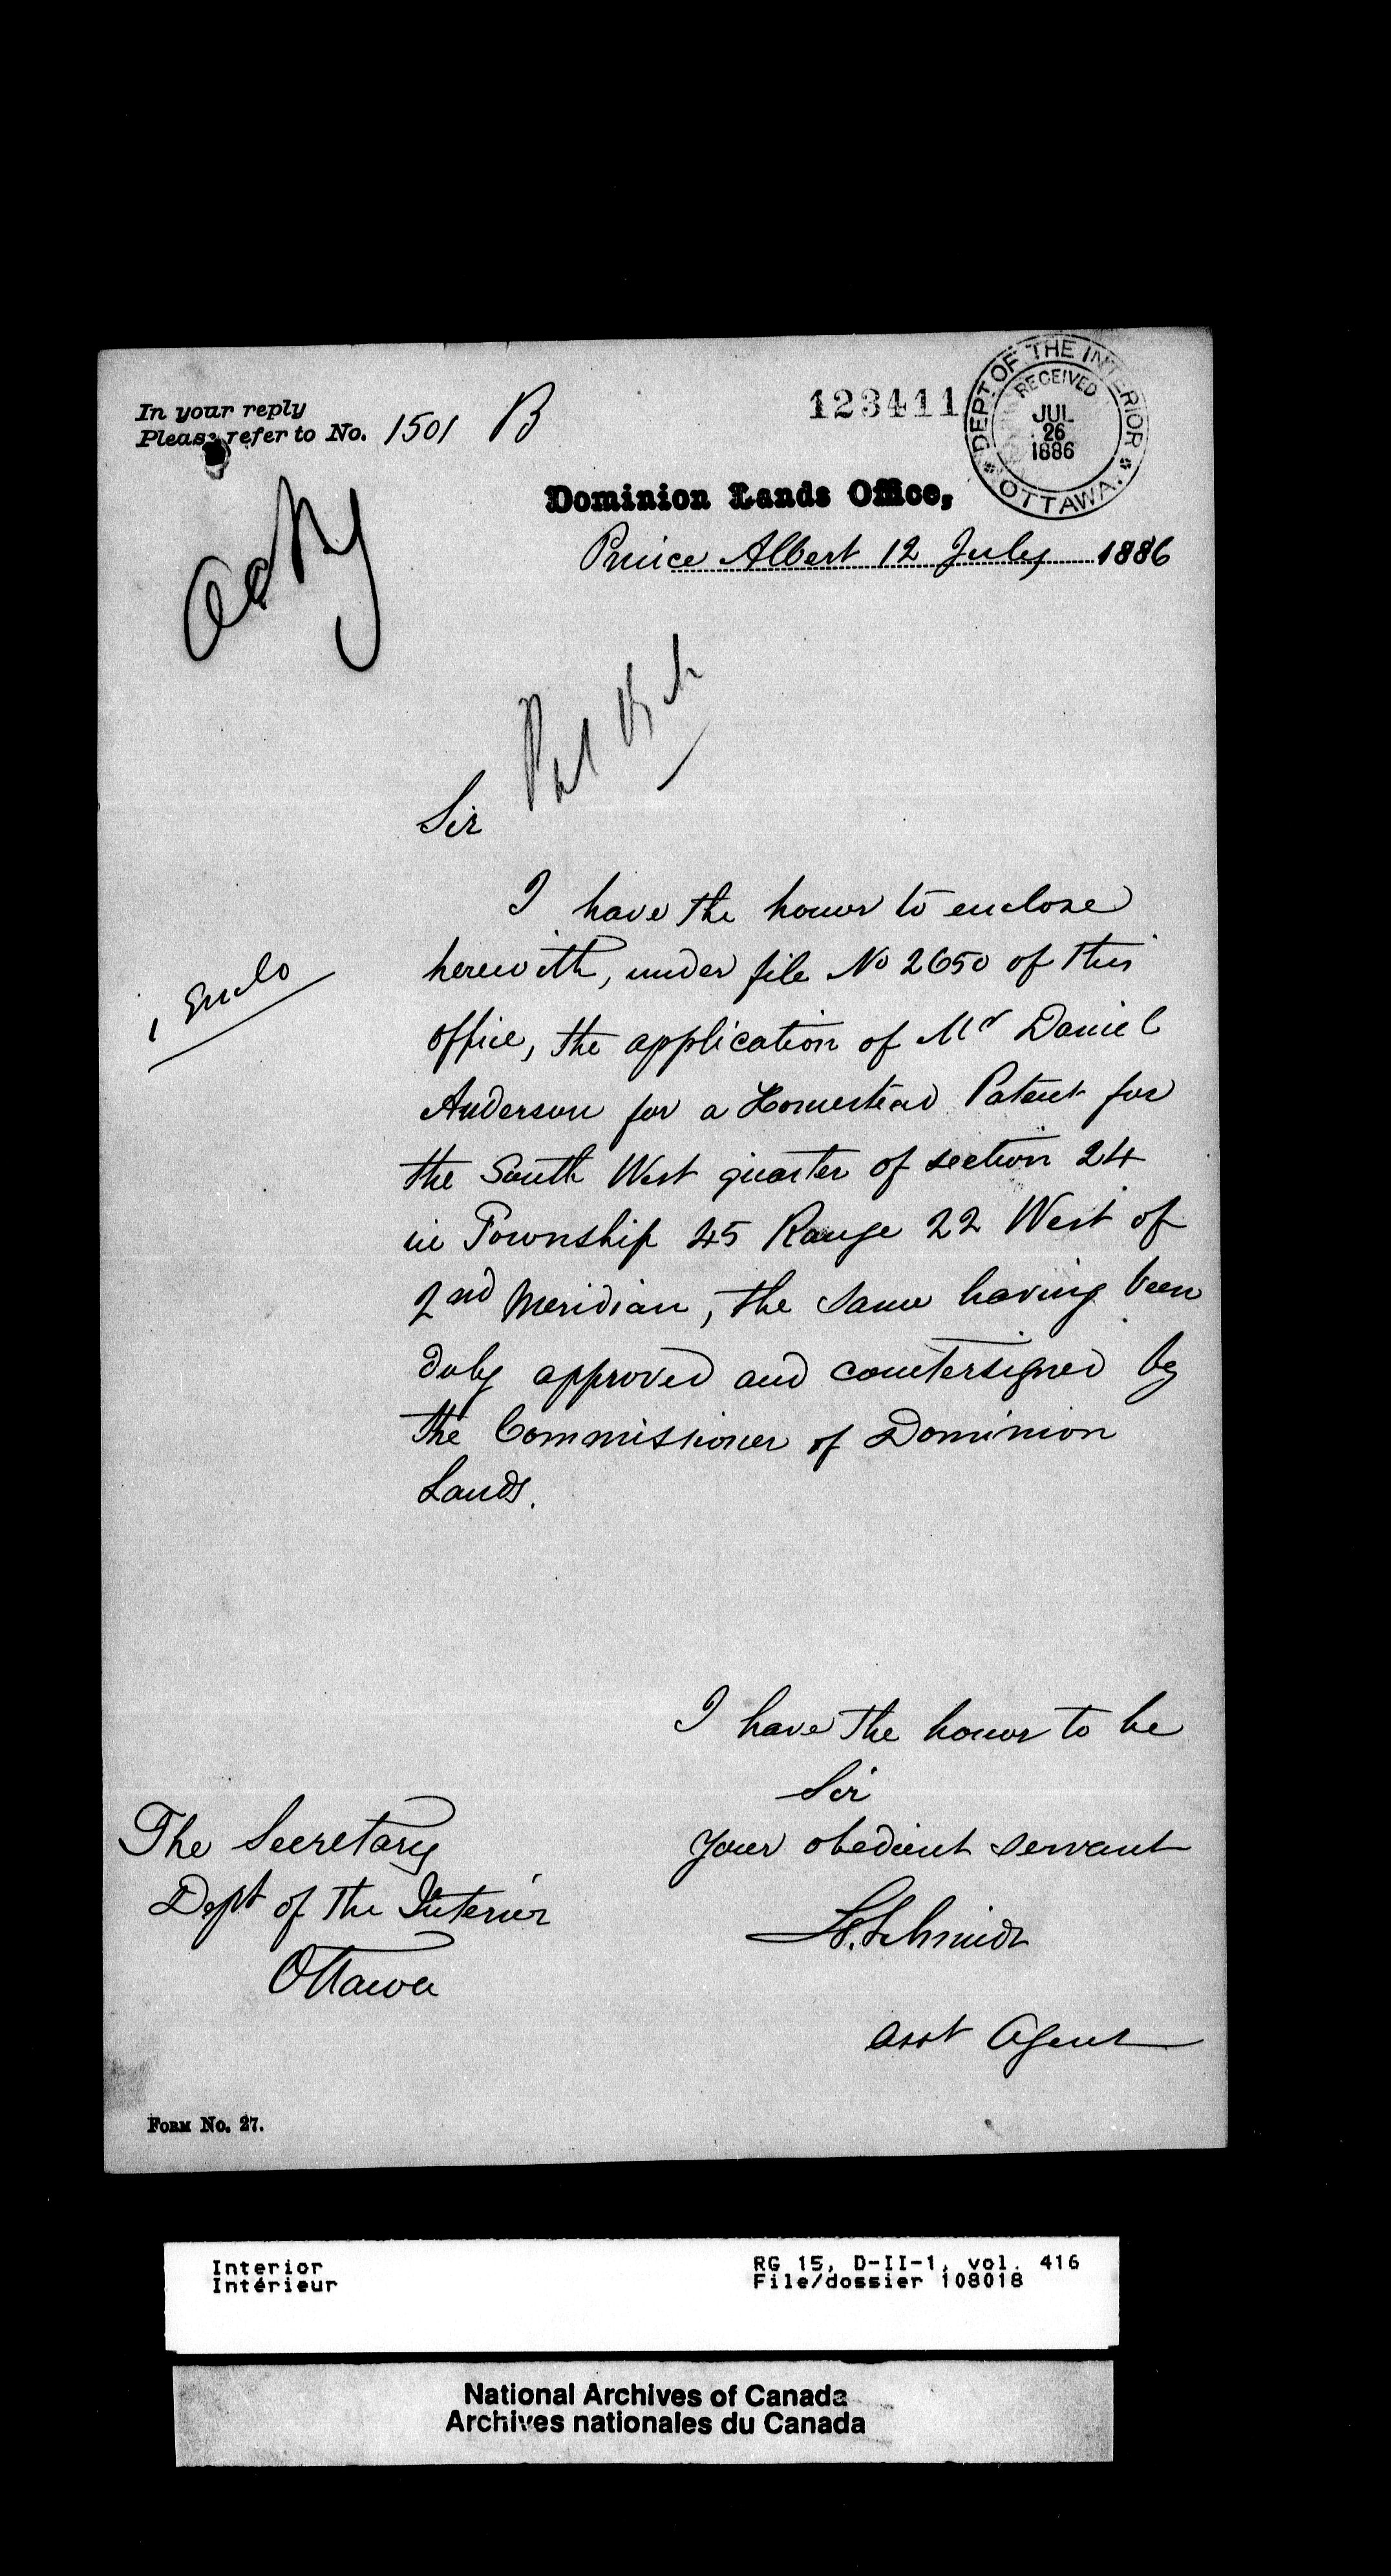 In your reply
Please refer to No. 1501 B
123411
DEPT OF THE INTERIOR
RECEIVED
JUL
26
1886
OTTAWA.
Dominion Lands Office,
Prince Albert 12 July 1886
Sir
I have the honor to enclose
1 Enclo
herewith, under file No 2650 of this
office, the application of Mr Daniel
Anderson for a Homestead Patent for
the South West quarter of section 24
in Township 45 Range 22 West of
2nd Meridian, the same having been
duly approved and countersigned by
the Commissioner of Dominion
Lands.
I have the honor to be
Sir
Your obedient servant
L. Schmidt
asst Agent
The Secretary
Dept of the Interior
Ottawa
FORM No. 27.
Interior
Intérieur
RG 15, D-II-1, vol. 416
File/dossier 108018
National Archives of Canada
Archives nationales du Canada